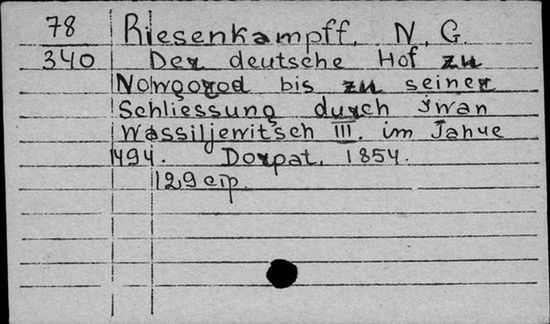 78 Riesenkampff, N. G.
340 Der deutsche Hof zu
Nowgorod bis zu seiner
Schliessung durch Iwan
Wassiljewitsch III. im Jahre
1494. Dorpat. 1854.
129 стр.